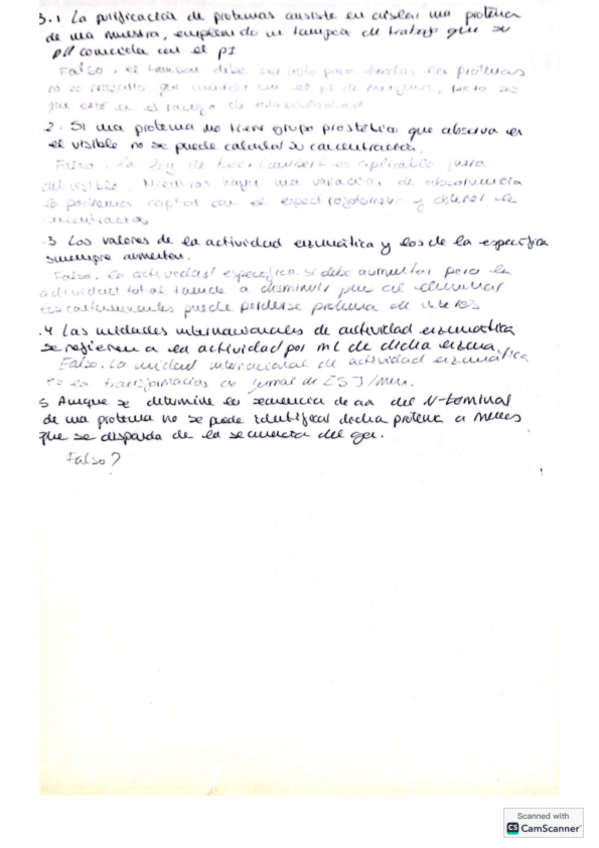 3.1 La purificación de proteínas consiste en aislar una proteína
de una muestra, empleando un tampón de trabajo que su
pH coincida con el pI
Falso, el tampón debe ser apto para todas las proteínas
no es necesario que coincida con el pI de ninguna, pero sí
que esté en el rango de estabilidad
2. Si una proteína no tiene grupo prostético que absorva en
el visible no se puede calcular su concentración.
Falso. La ley de Beer Lambert es aplicable fuera
del visible. Mientras haya una variación de absorvancia
la podremos captar con el espectrofotómetro y obtener la
concentración
.3 Los valores de la actividad enzimática y los de la específica
siempre aumentan.
Falso. La actividad específica sí debe aumentar pero la
actividad total tiende a disminuir pues al eliminar
los contaminantes puede perderse proteína de interés
.4 Las unidades internacionales de actividad enzimática
se refieren a la actividad por ml de dicha enzima.
Falso. La unidad internacional de actividad enzimática
es la transformación de 1 μmol de [S]/min.
5 Aunque se determine la secuencia de aa del N-terminal
de una proteína no se puede identificar dicha proteína a menos
que se disponga de la secuencia del gen.
Falso?
Scanned with
CS CamScanner